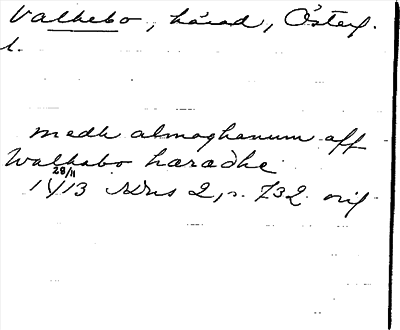 Valkebo, härad, Österg.
l.
medh almoghanum aff
Walkabo häradhe
28/11
1413 SDns 2, s. 732 orig